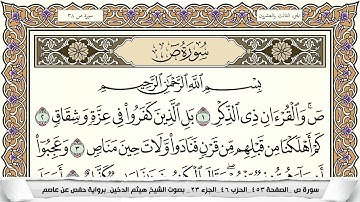 الجزء الثالث والعشرون
سورة ص ٣٨
سُورَةُ صٓ
بِسْمِ ٱللَّهِ ٱلرَّحْمَٰنِ ٱلرَّحِيمِ
صٓ ۚ وَٱلْقُرْءَانِ ذِى ٱلذِّكْرِ ١ بَلِ ٱلَّذِينَ كَفَرُوا۟ فِى عِزَّةٍ وَشِقَاقٍ ٢
كَمْ أَهْلَكْنَا مِن قَبْلِهِم مِّن قَرْنٍ فَنَادَوا۟ وَّلَاتَ حِينَ مَنَاصٍ ٣ وَعَجِبُوٓا۟
سورة ص _الصفحة ٤٥٣_ الحزب ٤٦_ الجزء ٢٣_ بصوت الشيخ هيثم الدخين_ برواية حفص عن عاصم